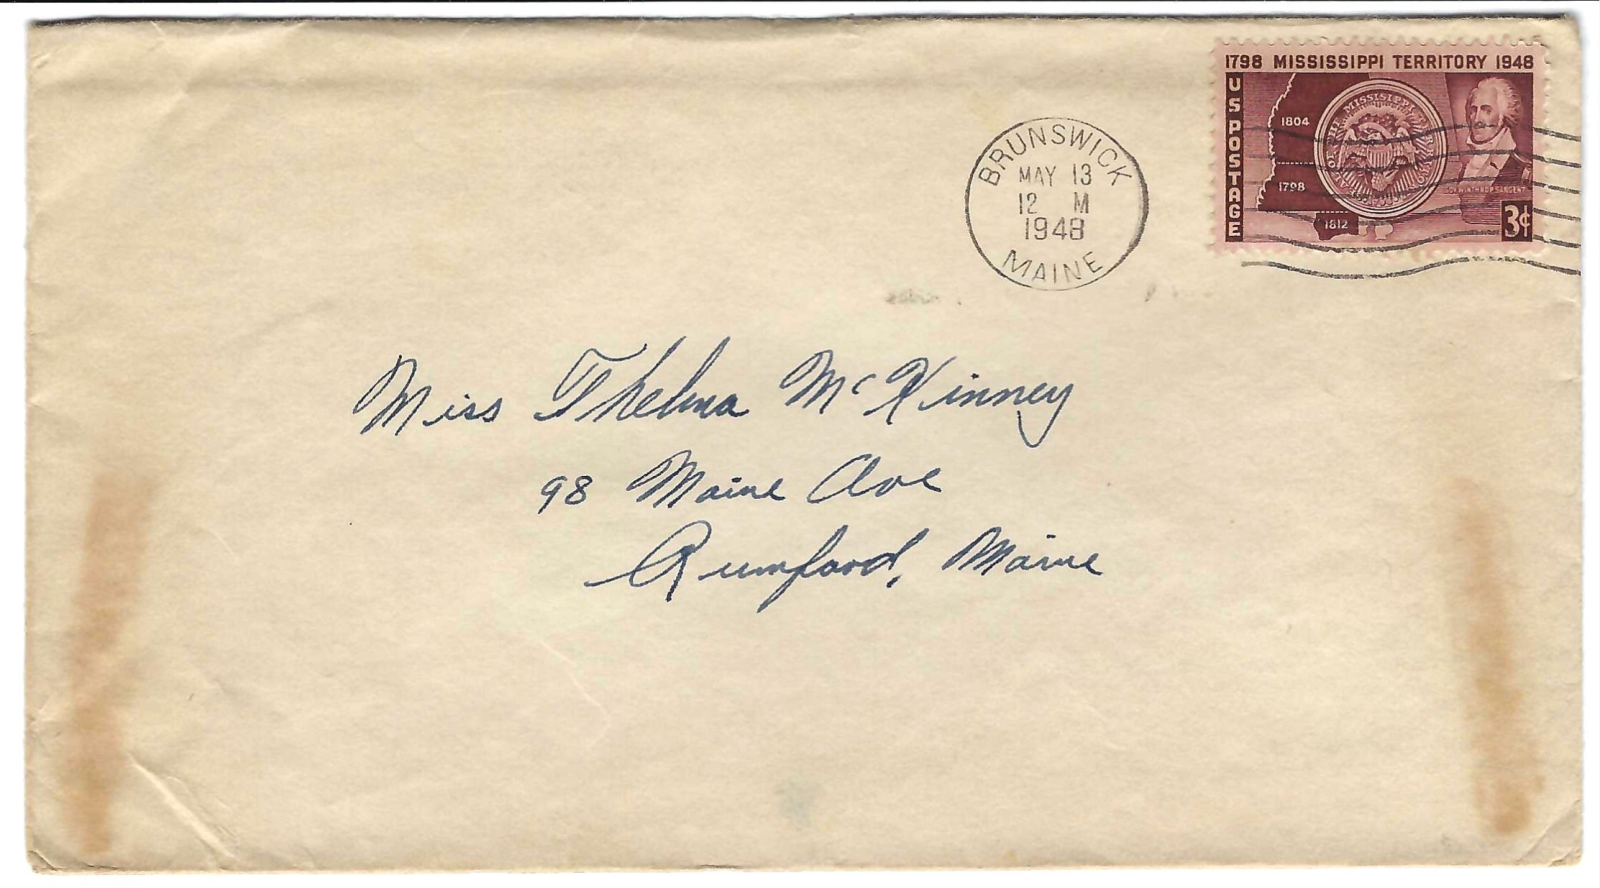 1798 MISSISSIPPI TERRITORY 1948
US POSTAGE
1804
1798
1812
MISSISSIPPI
GOV. WINTHROP SARGENT
3¢
BRUNSWICK
MAY 13
12 M
1948
MAINE
Miss Thelma McKinney
98 Maine Ave
Rumford, Maine